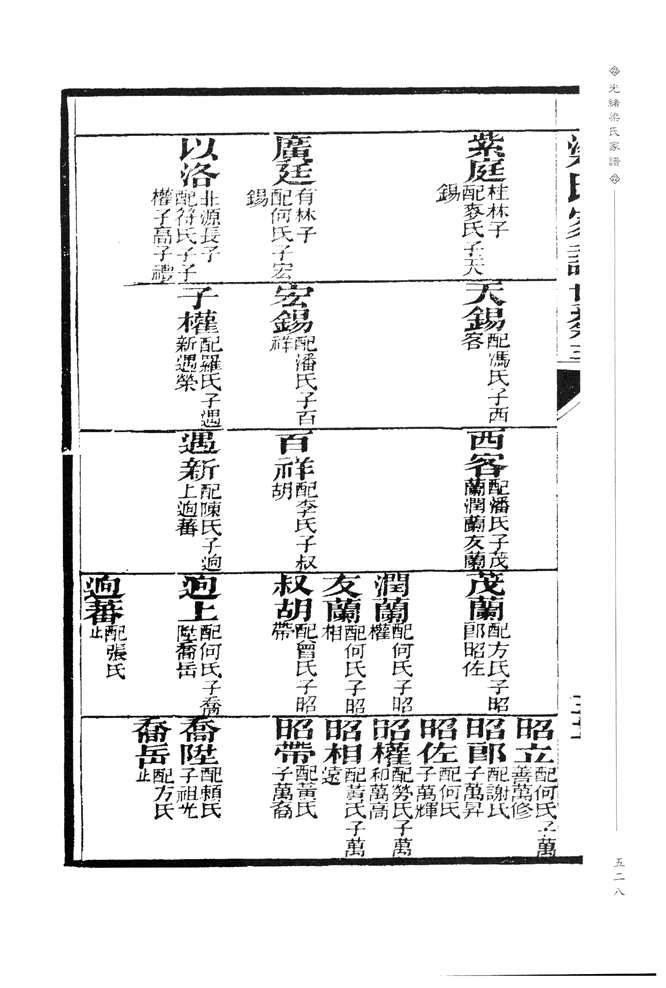 光緒梁氏家譜
五二八
紫庭
桂林子
配麥氏子天
錫
廣廷
有林子
配何氏子宏
錫
以洛
北源長子
配符氏子子
權子高子禮
天錫
配馮氏子西
客
宏錫
配潘氏子百
祥
子權
配羅氏子遇
新遇榮
西客
配潘氏子茂
蘭潤蘭友蘭
百祥
配李氏子叔
胡
遇新
配陳氏子逈
上逈蕃
茂蘭
配方氏子昭
郎昭佐
潤蘭
配何氏子昭
權
友蘭
配何氏子昭
相
叔胡
配曾氏子昭
帶
逈上
配何氏子喬
陞喬岳
逈蕃
配張氏
止
昭立
配何氏子萬
善萬修
昭郎
配謝氏
子萬昇
昭佐
配何氏
子萬輝
昭權
配勞氏子萬
和萬高
昭相
配黃氏子萬
遠
昭帶
配黃氏
子萬裔
喬陞
配賴氏
子祖光
喬岳
配方氏
止